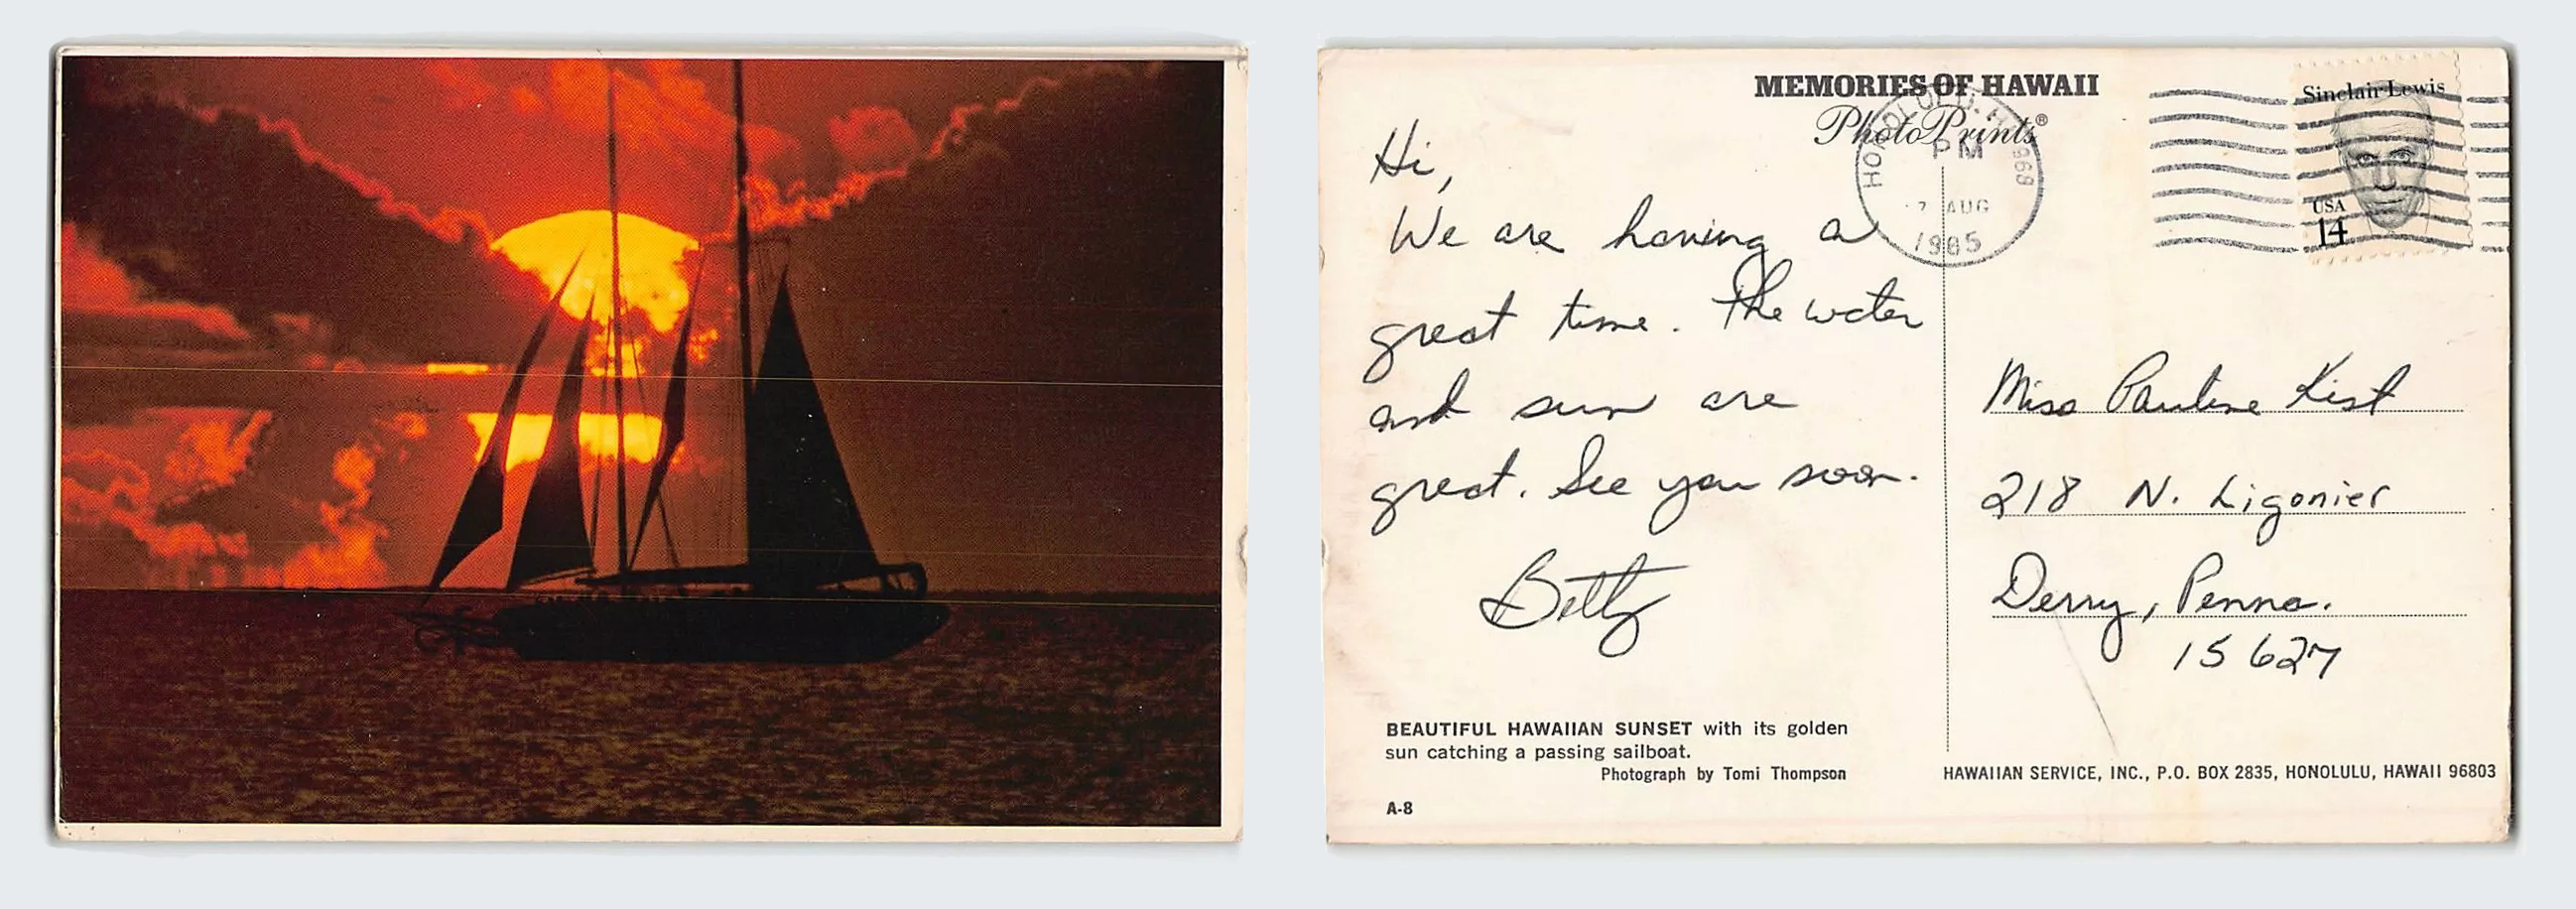 MEMORIES OF HAWAII
PhotoPrints®
HONOLULU, HI 968
PM
7 AUG
1985
Sinclair Lewis
USA
14
Hi,
We are having a
great time. The water
and sun are
great. See you soon.
Betty
Miss Pauline Kist
218 N. Ligonier
Derry, Penna.
15627
BEAUTIFUL HAWAIIAN SUNSET with its golden
sun catching a passing sailboat.
Photograph by Tomi Thompson
A-8
HAWAIIAN SERVICE, INC., P.O. BOX 2835, HONOLULU, HAWAII 96803